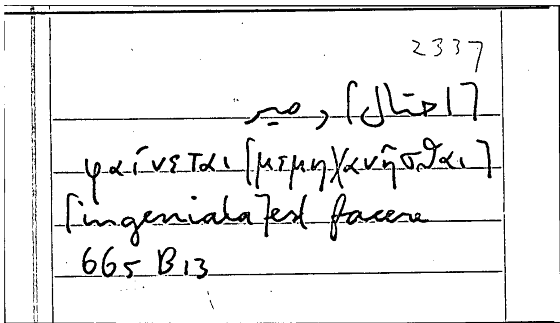 2337
[احتال] و صير
φαίνεται [μεμη)χανῆσθαι]
[ingeniata] est facere
665 B 13